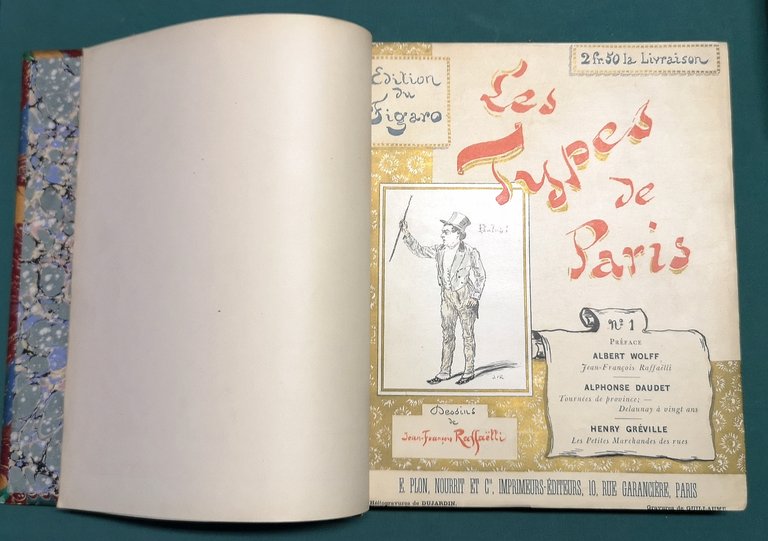 Edition
du
Figaro
2 fr. 50 la Livraison
Les
Types
de
Paris
J.F.R
Dessins
de
Jean-François Raffaëlli
Nº 1
PRÉFACE
ALBERT WOLFF
Jean-François Raffaëlli
ALPHONSE DAUDET
Tournées de province; —
Delaunay à vingt ans
HENRY GRÉVILLE
Les Petites Marchandes des rues
E. PLON, NOURRIT ET Cie, IMPRIMEURS-ÉDITEURS, 10, RUE GARANCIÈRE, PARIS
Héliogravures de DUJARDIN.
Gravures de GUILLAUME